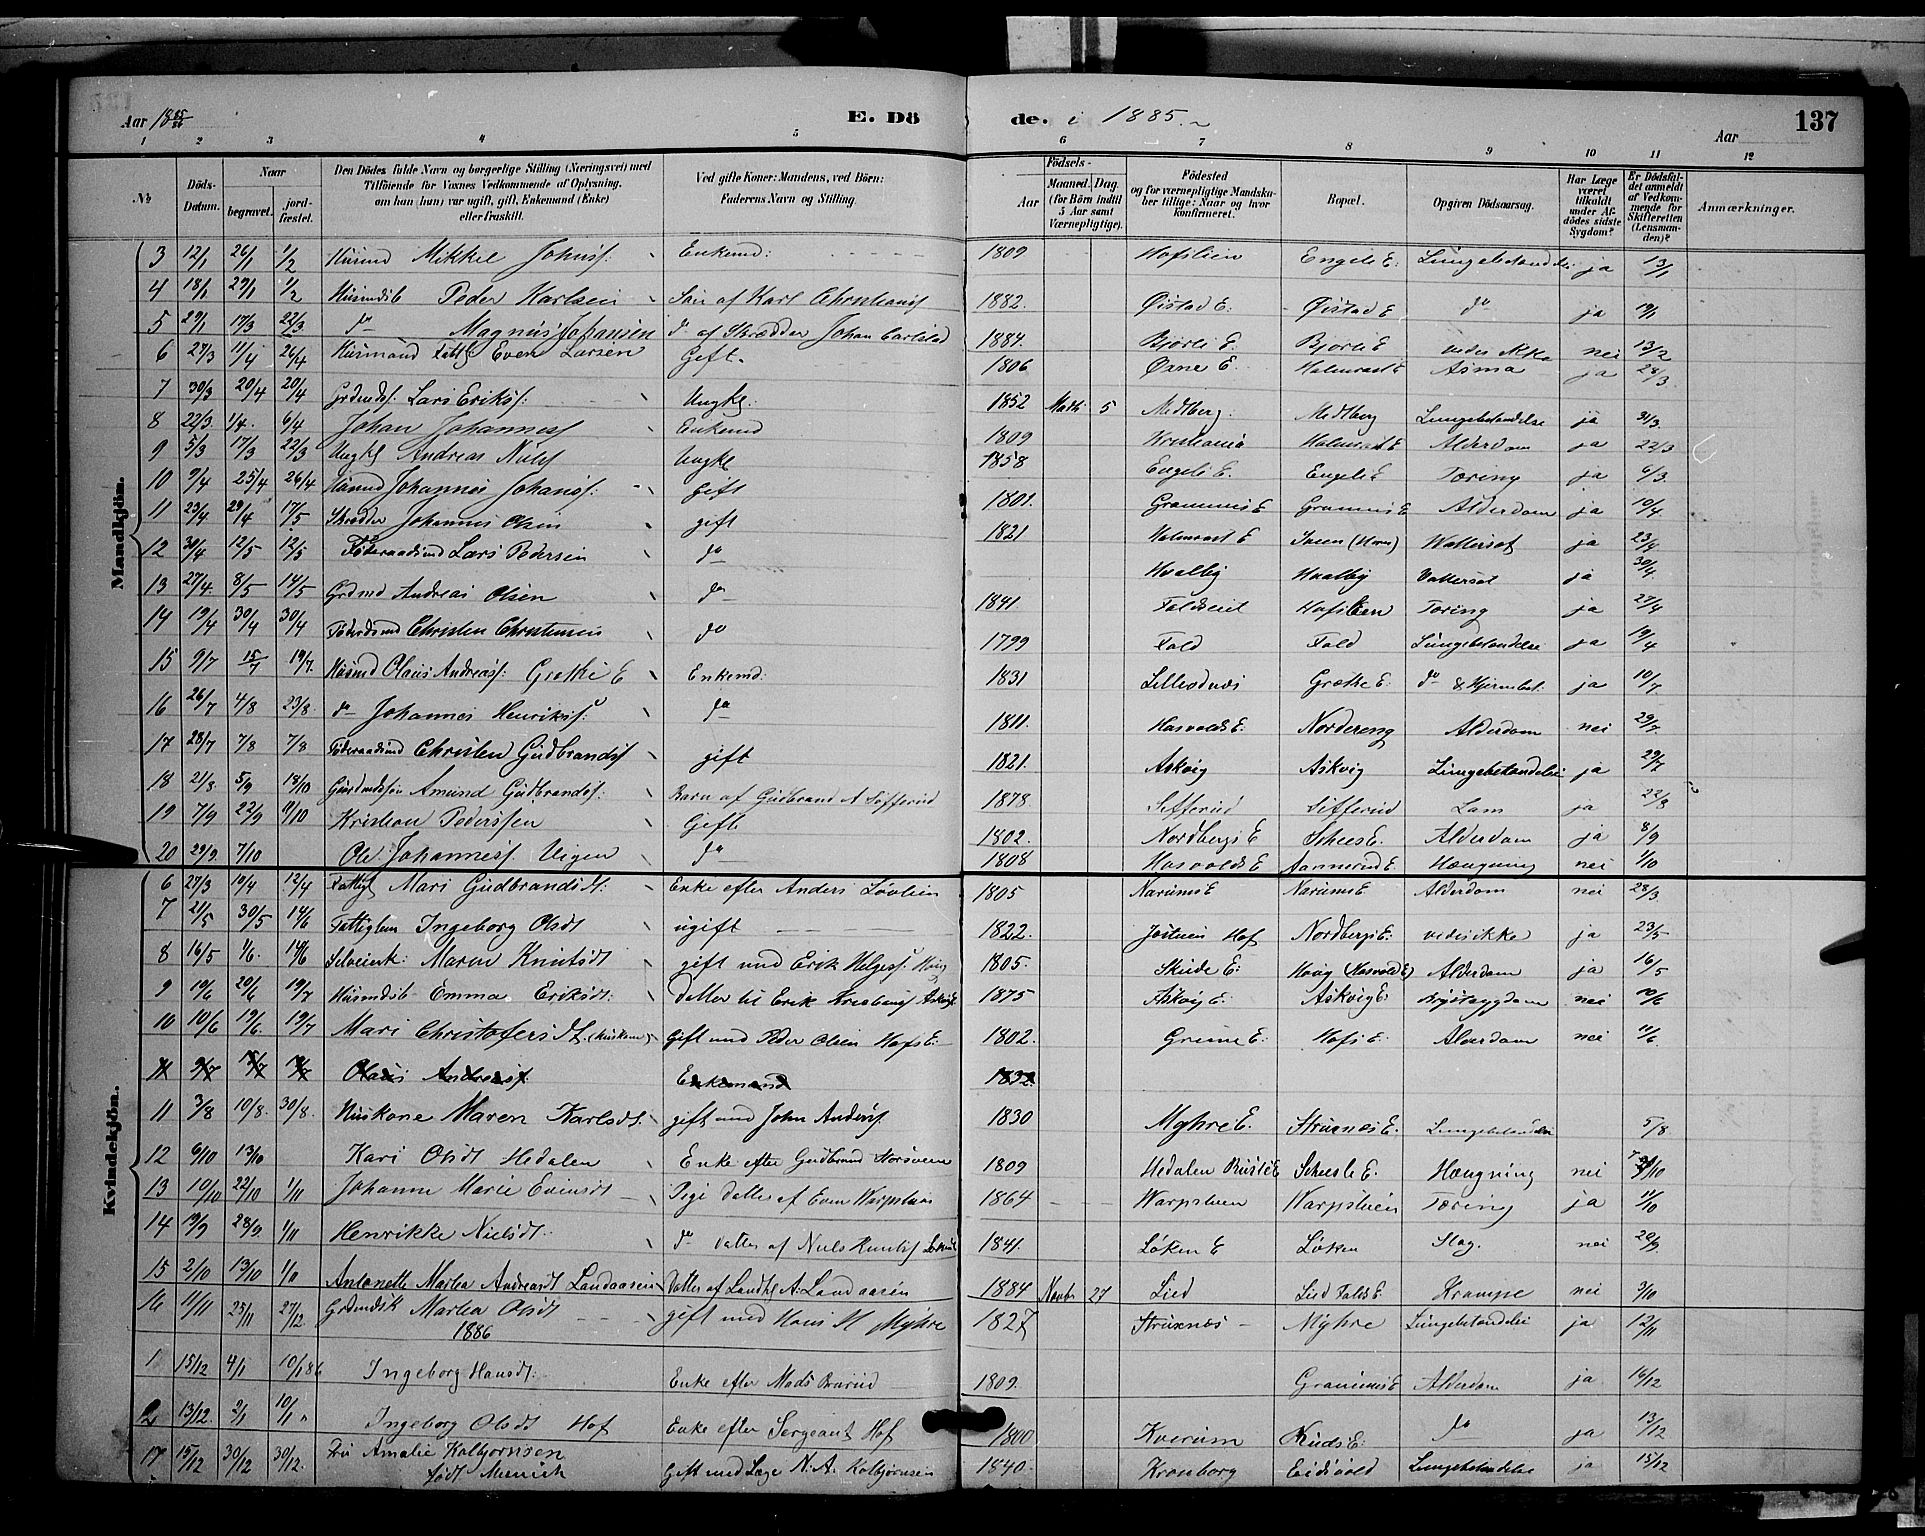 Aar 1885/86 E. Dö de. i 1885. Aar 137
1 2 3 4 5 6 7 8 9 10 11 12
No Döds-Datum. Naar begravet. jordfæstet. Den Dödes fulde Navn og borgerlige Stilling (Næringsvei) med Tilföiende for Voxnes Vedkommende af Oplysning, om han (hun) var ugift, gift, Enkemand (Enke) eller fraskilt. Ved gifte Koner: Mandens, ved Börn: Faderens Navn og Stilling. Födsels- Aar Maaned. Dag. (for Börn indtil 5 Aar samt Værnepligtige). Födested og for værnepligtige Mandskaber tillige: Naar og hvor konfirmeret. Bopæl. Opgiven Dödsaarsag. Har Læge været tilkaldt under Afdödes sidste Sygdom? Er Dödsfaldet anmeldt af Vedkommende for Skifteretten (Lensmanden)? Anmærkninger.
Mandkjön.
3 12/1 26/1 1/2 Husmd Mikkel Johnsf: Enkemd: 1809 Hofslien Engeli E: Lungebetændelse ja 13/1
4 18/1 29/1 1/2 Husmdsb Peder Karlsen Søn af Karl Christiansf 1882. Øistad E: Øistad E do ja 19/1
5 29/1 17/3 22/3 do Magnus Johansen do af Skrædder Johan Carlstad 1884. Bjorli E. Bjorli E vides ikke nei 13/2
6 27/3 11/4 26/4 Husmand Fattig Even Larsen Gift. 1806 Øxne E. Holmrast E Asma ja 28/3
7 30/3 20/4 20/4 Grdmds: Lars Eriksf: Ungkl: 1852 5 Medtberg Medtberg Lungebetændelse ja 31/3
8 22/3 1/4. 6/4 Johan Johannesf Enkemd 1809 Kristiania Holmrast E Alderdom ja 22/3
9 5/3 17/3 22/3 Ungkl Andreas Nilsf Ungkl 1858 Engeli E. Engeli E Tæring ja 6/3.
10 9/4 25/4 26/4 Husmd Johannes Johansf: Gift 1801. Grammes E Grammes E Alderdom ja 10/4
11 23/4 29/4 17/5 Skrædder Johannes Olsen gift 1821 Holmrast E (Hovs) Wattersot ja 23/4
12 30/4 12/5 12/5 Föderaadsmd Lars Pedersen do Hvalby Hvalby Vattersot ja 30/4
13 27/4. 8/5 14/5 Grdmd Andreas Olsen do 1841 Foldseiet Hofslien Tæring ja 27/4
14 19/4 30/4 30/4 Föderdsmd Christen Christensen do 1799 Fald Fald Lungebetændelse ja 19/4
15 9/7 15/7 19/7. Husmd Olaus Andreasf: Grøtthe E Enkemd: 1831 Lillerodnæs Grøtke E: do & Hjernebet. ja 10/7
16 26/7 4/8 23/8. do Johannes Henriksf: do 1811. Hasvolds E. Nordereng Alderdom nei 29/7
17 28/7 7/8 7/8 Föderaadsmd Christen Gudbrandsf gift 1821. Askvig Askvig Lungebetændelse ja 29/7
18 21/8 5/9 18/10 Gaardmdssøn Amund Gudbrandsf: Barn af Gudbrand A Sofferud 1878 Sefferud Sefferud Lam ja 22/8
19 7/9 22/9 11/10 Kristian Pederssen Gift 1802. Nordbergs E Skees E. Alderdom ja 8/9
20 29/9. 7/10 Ole Johannesf. Vigen do 1808 Hasvolds E Aannerud E. Hængning nei 1/10
Kvindekjön.
6 27/3 10/4 12/4 Fattigl Mari Gudbrandsdt: Enke efter Anders Løvlien 1805 Narums E Narums E Alderdom nei 28/3
7 21/5 30/5 14/6 Fattiglem Ingeborg Olsdt ugift 1822. Jostuen Hof Nordbergs E: vides ikke ja 23/5
8 16/5 1/6. 14/6 Selveierk: Maren Knutsdt gift med Erik Helgesf: Houg 1805. Skinde E: Houg (Hasvold E) Alderdom ja 16/5
9 19/6 20/6 19/7 Husmdsb Emma Eriksdt: datter til Erik Askvig E 1875 Askvig E: Askvig E Brystsygdom nei 20/6
10 10/6 19/6 19/7 Mari Christofersdt. (Huskone) Gift med Peder Olsen Hofs E: 1802. Grime E: Hofs E: Alderdom nei 11/6
11 9/7 15/7 19/7 Olaus Andreasf: Enkemand 1832
11 3/8 10/8. 30/8. Huskone Maren Karlsdt. gift med John Andersf 1830 Myhre E. Strunæs E. Lungebetændelse 5/8
12 6/10 13/10 Kari Olsdt Hedalen Enke efter Gudbrand Korsveen 1809 Hedalen Busle E Scheesle E. Hængning nei 7/10
13 10/10 22/10 1/11 Johanne Marie Evensdt Pige datter af Even Warpstuen 1864 Warpstuen Warpstuen Tæring ja 11/10
14 19/9 28/9. 1/11 Henrikke Nielsdt. do datter af Niels Knutsf 1841. Løken E Løken Slag. nei 20/9
15 2/10 13/10 1/11 Antonette Marthea Andreasdt Landaasen Datter af Landhl A: Landaasen 1884 Novbr 27 Lied Lied Falds E Krampe nei 3/10
16 11/11 25/11 27/12 Grdmdsk Marthea Olsdt gift med Hans H Myhre 1827 Strunæs Myhre Lungebetændelse ja 12/11
1886
1 15/12 4/1 10/1 86 Ingeborg Hansdt: Enke efter Mads Brurud 1809. Grammes E Alderdom ja 14/12
2 13/12. 2/1 10/1 Ingeborg Olsdt Hof Enke efter Sergeant Hof 1800 Kverum Ruds E: do ja 13/12
17 15/12 30/12 30/12. Fru Amalie Kolbjornsen født Munich Gift med Læge N. A. Kolbjørnsen 1840. Kronborg Eidsvold Lungebetændelse ja 15/12